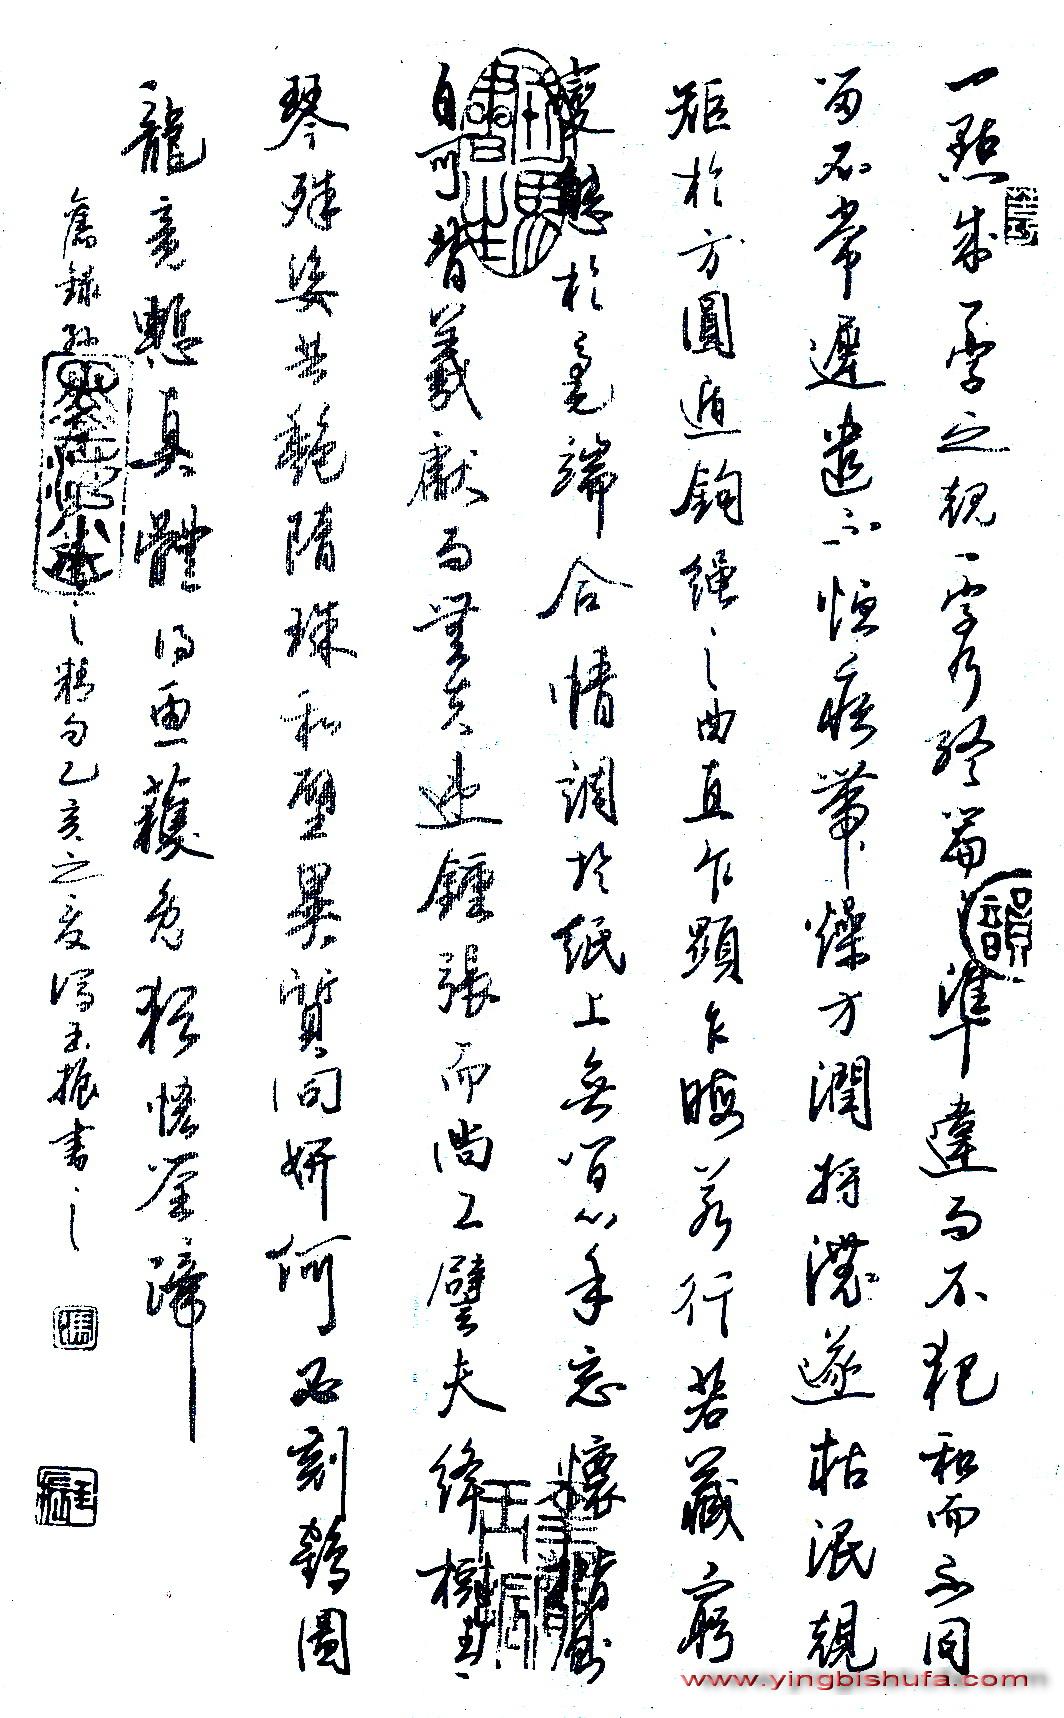 一點成一字之規一字乃終篇之準違而不犯和而不同
留不常遲遣不恒疾帶燥方潤將濃遂枯泯規
矩於方圓遁鉤繩之曲直乍顯乍晦若行若藏窮
變態於毫端合情調於紙上無間心手忘懷楷則
自可背羲獻而無失違鍾張而尚工譬夫絳樹青
琴殊姿共艷隋珠和璧異質同妍何必刻鶴圖
龍竟慙真體得魚獲兔猶悋筌蹄
舊錄孫 之精句乙亥之夏 玉振書之
韻
王振
www.yingbishufa.com